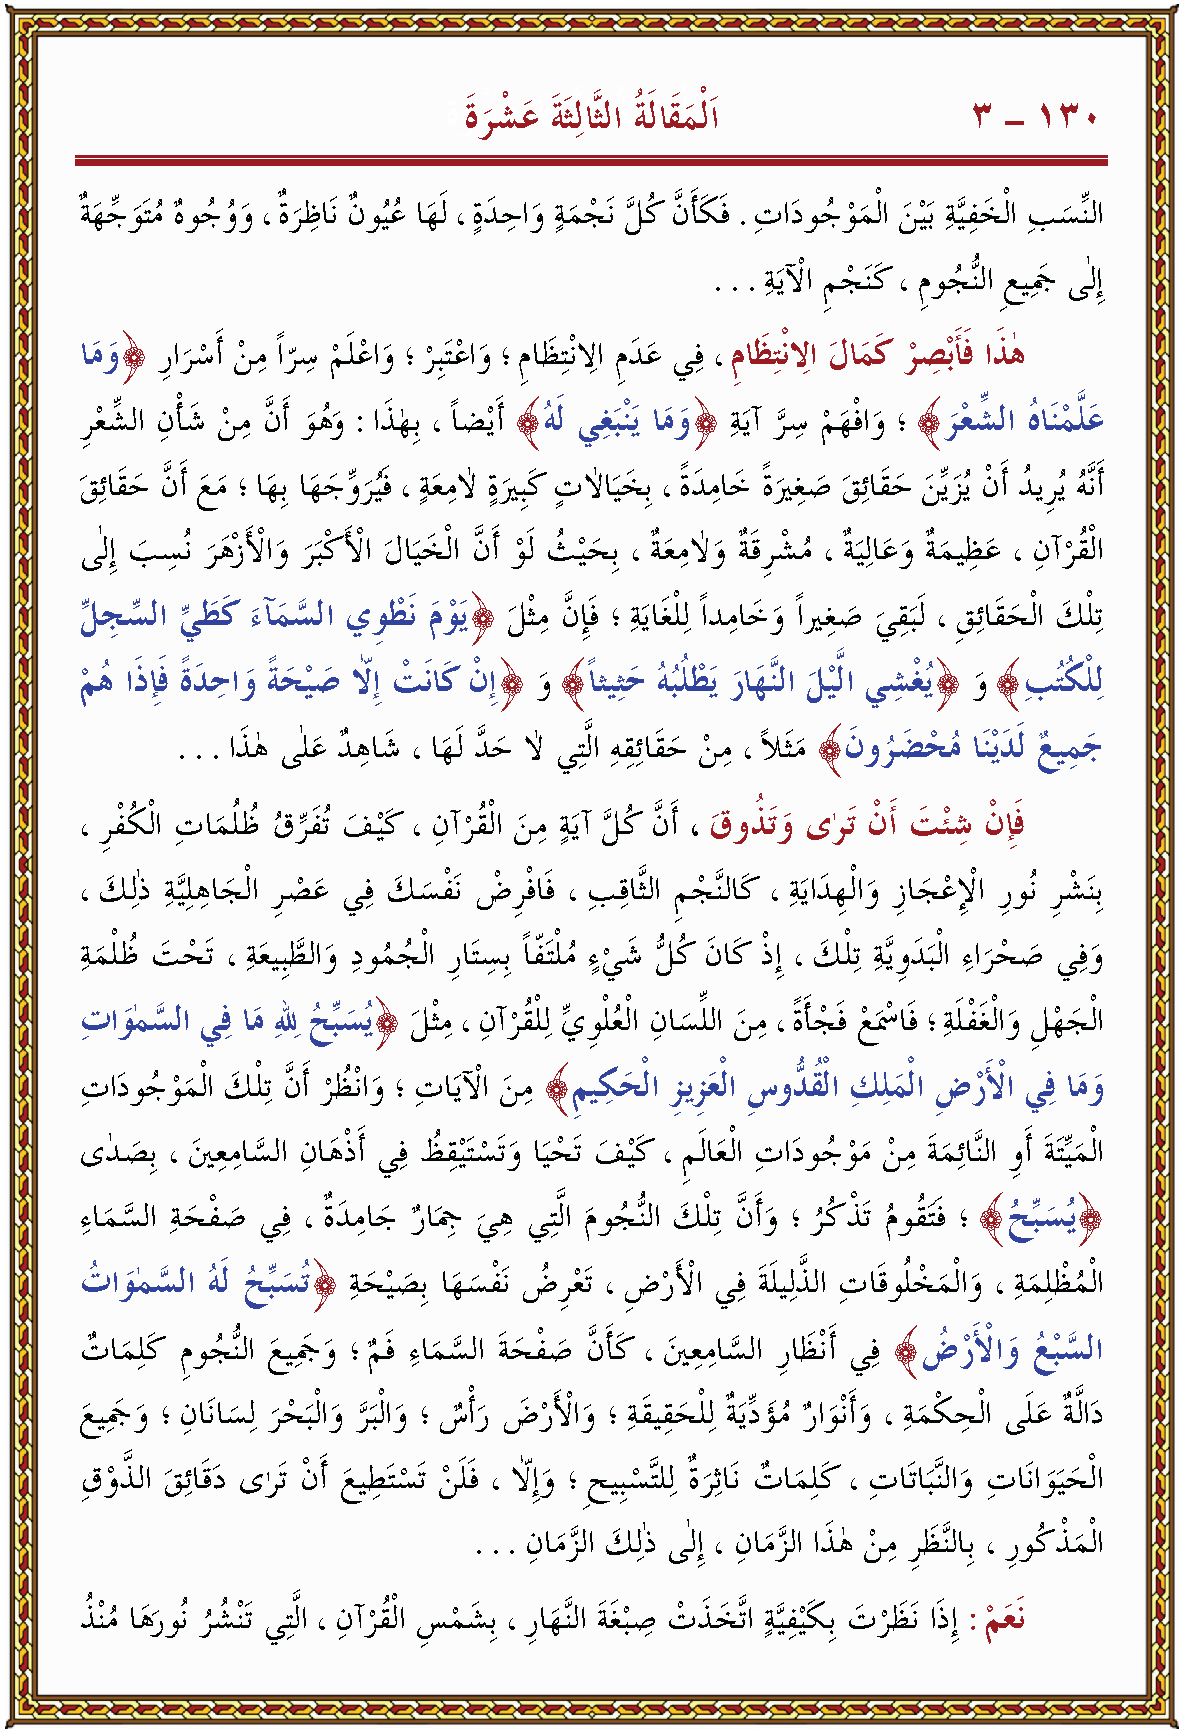 ١٣٠ – ٣ اَلْمَقَالَةُ الثَّالِثَةَ عَشْرَةَ
النِّسَبِ الْخَفِيَّةِ بَيْنَ الْمَوْجُودَاتِ . فَكَأَنَّ كُلَّ نَجْمَةٍ وَاحِدَةٍ ، لَهَا عُيُونٌ نَاظِرَةٌ ، وَوُجُوهٌ مُتَوَجِّهَةٌ
إِلٰى جَمِيعِ النُّجُومِ ، كَنَجْمِ الْآيَةِ . . .
هٰذَا فَأَبْصِرْ كَمَالَ الِانْتِظَامِ ، فِي عَدَمِ الِانْتِظَامِ ؛ وَاعْتَبِرْ ؛ وَاعْلَمْ سِرّاً مِنْ أَسْرَارِ ﴿وَمَا
عَلَّمْنَاهُ الشِّعْرَ﴾ ؛ وَافْهَمْ سِرَّ آيَةِ ﴿وَمَا يَنْبَغِي لَهُ﴾ أَيْضاً ، بِهٰذَا : وَهُوَ أَنَّ مِنْ شَأْنِ الشِّعْرِ
أَنَّهُ يُرِيدُ أَنْ يُزَيِّنَ حَقَائِقَ صَغِيرَةً خَامِدَةً ، بِخَيَالَاتٍ كَبِيرَةٍ لَامِعَةٍ ، فَيُرَوِّجَهَا بِهَا ؛ مَعَ أَنَّ حَقَائِقَ
الْقُرْآنِ ، عَظِيمَةٌ وَعَالِيَةٌ ، مُشْرِقَةٌ وَلَامِعَةٌ ، بِحَيْثُ لَوْ أَنَّ الْخَيَالَ الْأَكْبَرَ وَالْأَزْهَرَ نُسِبَ إِلٰى
تِلْكَ الْحَقَائِقِ ، لَبَقِيَ صَغِيراً وَخَامِداً لِلْغَايَةِ ؛ فَإِنَّ مِثْلَ ﴿يَوْمَ نَطْوِي السَّمَآءَ كَطَيِّ السِّجِلِّ
لِلْكُتُبِ﴾ وَ ﴿يُغْشِي الَّيْلَ النَّهَارَ يَطْلُبُهُ حَثِيثاً﴾ وَ ﴿إِنْ كَانَتْ إِلَّا صَيْحَةً وَاحِدَةً فَإِذَا هُمْ
جَمِيعٌ لَدَيْنَا مُحْضَرُونَ﴾ مَثَلاً ، مِنْ حَقَائِقِهِ الَّتِي لَا حَدَّ لَهَا ، شَاهِدٌ عَلٰى هٰذَا . . .
فَإِنْ شِئْتَ أَنْ تَرٰى وَتَذُوقَ ، أَنَّ كُلَّ آيَةٍ مِنَ الْقُرْآنِ ، كَيْفَ تُفَرِّقُ ظُلُمَاتِ الْكُفْرِ ،
بِنَشْرِ نُورِ الْإِعْجَازِ وَالْهِدَايَةِ ، كَالنَّجْمِ الثَّاقِبِ ، فَافْرِضْ نَفْسَكَ فِي عَصْرِ الْجَاهِلِيَّةِ ذٰلِكَ ،
وَفِي صَحْرَاءِ الْبَدَوِيَّةِ تِلْكَ ، إِذْ كَانَ كُلُّ شَيْءٍ مُلْتَفّاً بِسِتَارِ الْجُمُودِ وَالطَّبِيعَةِ ، تَحْتَ ظُلْمَةِ
الْجَهْلِ وَالْغَفْلَةِ ؛ فَاسْمَعْ فَجْأَةً ، مِنَ اللِّسَانِ الْعُلْوِيِّ لِلْقُرْآنِ ، مِثْلَ ﴿يُسَبِّحُ لِلّٰهِ مَا فِي السَّمٰوَاتِ
وَمَا فِي الْأَرْضِ الْمَلِكِ الْقُدُّوسِ الْعَزِيزِ الْحَكِيمِ﴾ مِنَ الْآيَاتِ ؛ وَانْظُرْ أَنَّ تِلْكَ الْمَوْجُودَاتِ
الْمَيِّتَةَ أَوِ النَّائِمَةَ مِنْ مَوْجُودَاتِ الْعَالَمِ ، كَيْفَ تَحْيَا وَتَسْتَيْقِظُ فِي أَذْهَانِ السَّامِعِينَ ، بِصَدٰى
﴿يُسَبِّحُ﴾ ؛ فَتَقُومُ تَذْكُرُ ؛ وَأَنَّ تِلْكَ النُّجُومَ الَّتِي هِيَ جِمَارٌ جَامِدَةٌ ، فِي صَفْحَةِ السَّمَاءِ
الْمُظْلِمَةِ ، وَالْمَخْلُوقَاتِ الذَّلِيلَةَ فِي الْأَرْضِ ، تَعْرِضُ نَفْسَهَا بِصَيْحَةِ ﴿تُسَبِّحُ لَهُ السَّمٰوَاتُ
السَّبْعُ وَالْأَرْضُ﴾ فِي أَنْظَارِ السَّامِعِينَ ، كَأَنَّ صَفْحَةَ السَّمَاءِ فَمٌ ؛ وَجَمِيعَ النُّجُومِ كَلِمَاتٌ
دَالَّةٌ عَلَى الْحِكْمَةِ ، وَأَنْوَارٌ مُؤَدِّيَةٌ لِلْحَقِيقَةِ ؛ وَالْأَرْضَ رَأْسٌ ؛ وَالْبَرَّ وَالْبَحْرَ لِسَانَانِ ؛ وَجَمِيعَ
الْحَيَوَانَاتِ وَالنَّبَاتَاتِ ، كَلِمَاتٌ نَاثِرَةٌ لِلتَّسْبِيحِ ؛ وَإِلَّا ، فَلَنْ تَسْتَطِيعَ أَنْ تَرٰى دَقَائِقَ الذَّوْقِ
الْمَذْكُورِ ، بِالنَّظَرِ مِنْ هٰذَا الزَّمَانِ ، إِلٰى ذٰلِكَ الزَّمَانِ . . .
نَعَمْ : إِذَا نَظَرْتَ بِكَيْفِيَّةٍ اتَّخَذَتْ صِبْغَةَ النَّهَارِ ، بِشَمْسِ الْقُرْآنِ ، الَّتِي تَنْشُرُ نُورَهَا مُنْذُ